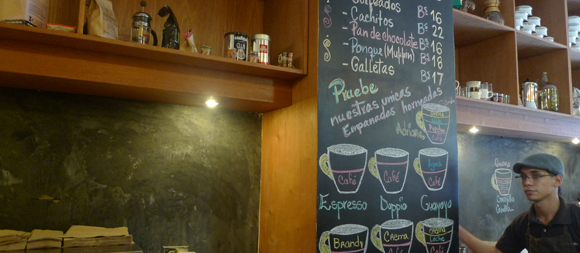 Golfeados Bs 16
- Cachitos Bs 22
- Pan de chocolate Bs 16
- Ponque (Muffin) Bs 18
- Galletas Bs 17
Pruebe
nuestras unicas
Empanadas horneadas
Adriana
Café
Café
Café
Espresso Doppio Guayoyo
Brandy
Crema
Café
Crema
Leche
Café